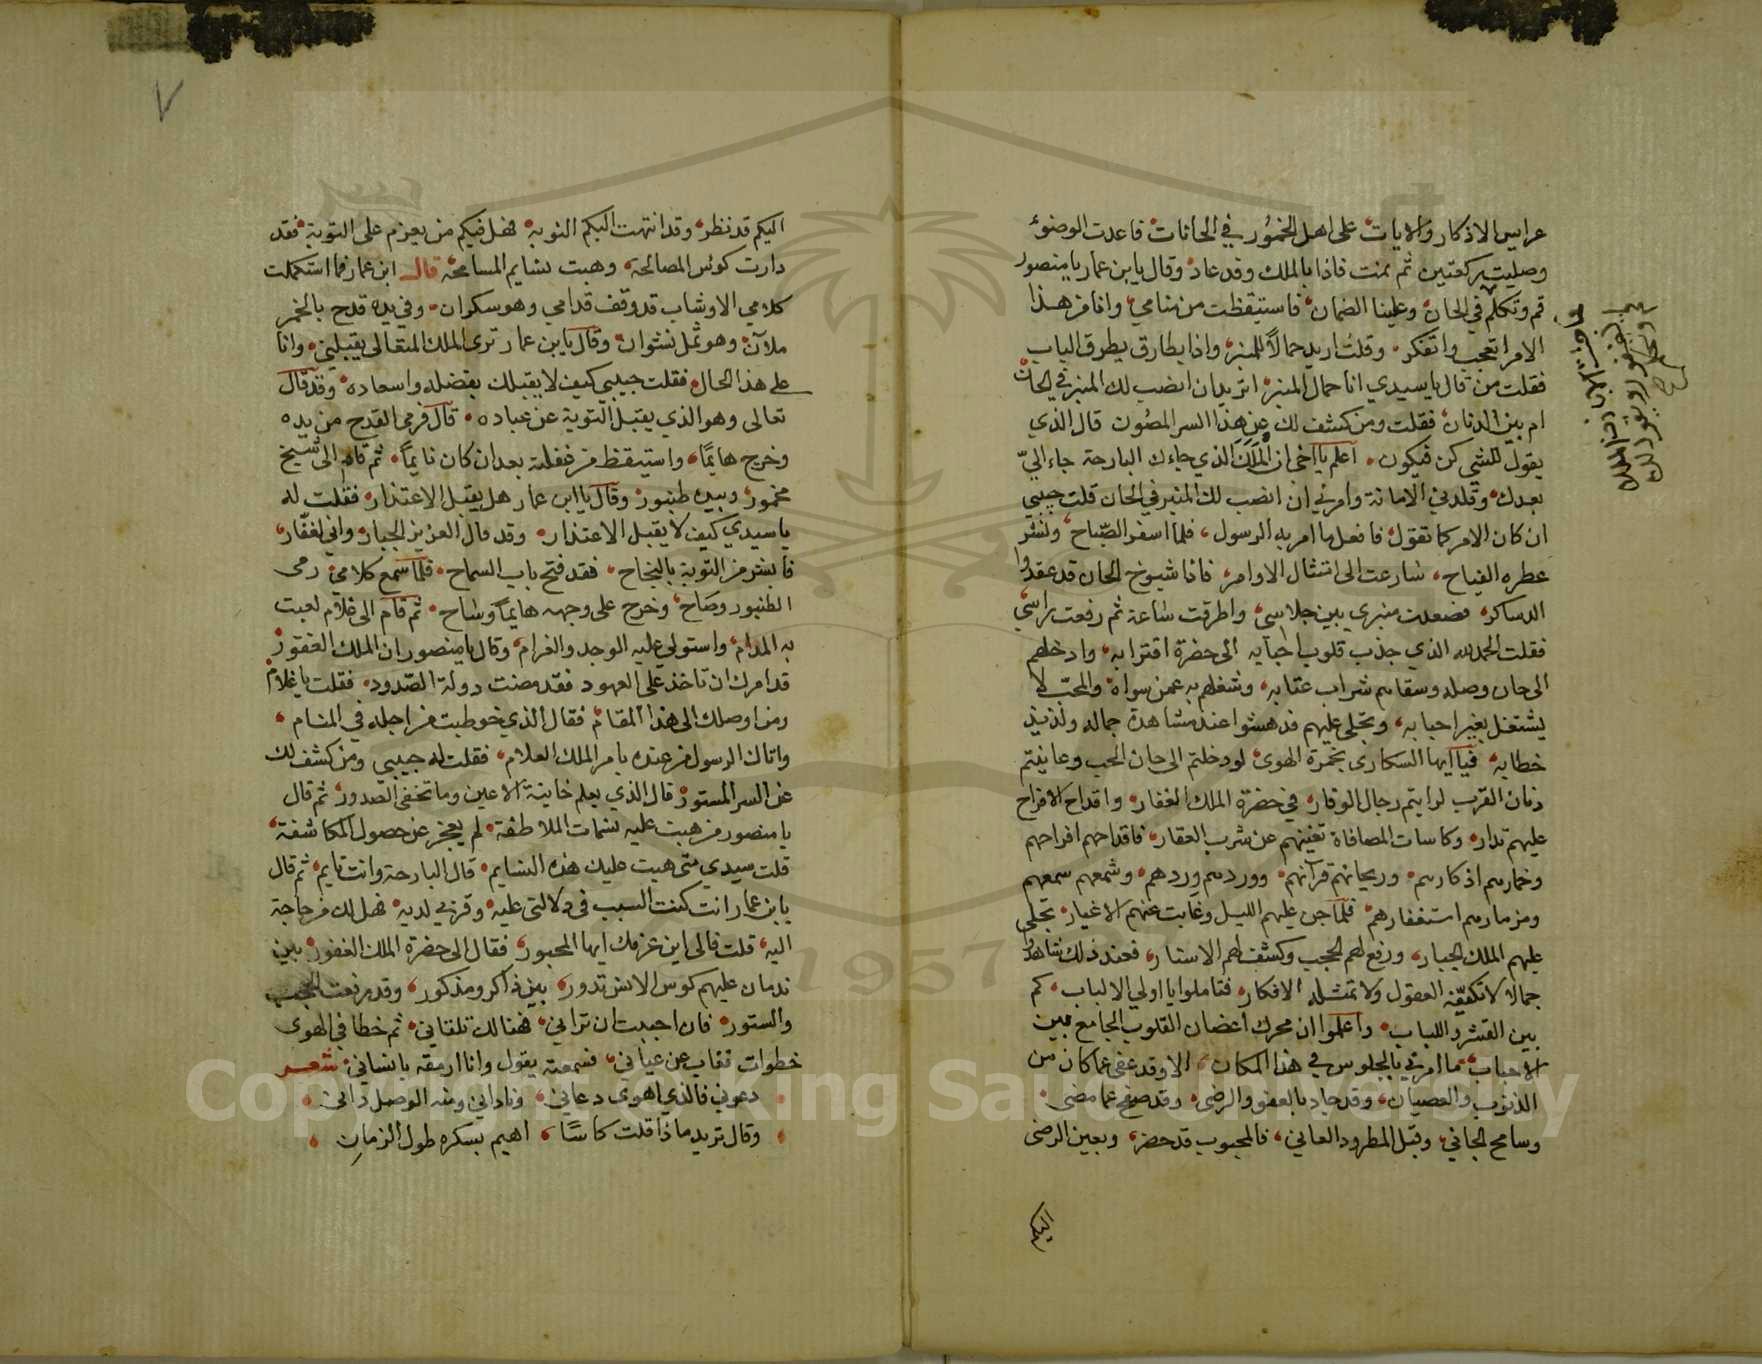 عرايس الاذكار والايات على اهل الخمور في الحانات فاعدت الوضوء
وصليت ركعتين ثم نمت فاذا بالملك وقد عاد وقال يابن عمار يا منصور
قم وتكلم في الحان وعلينا الضمان فاستيقظت من منامي وانا من هذا
الامر اتعجب واتفكر وقلت اريد حمالاً للمنبر واذا بطارق يطرق الباب
فقلت من قال يا سيدي انا حمال المنبر اتريد ان انصب لك المنبر في الحان
ام بين الدنان فقلت ومن كشف لك عن هذا السر المصون قال الذي
يقول للشي كن فيكون اعلم يا اخي ان الملك الذي جاءك البارحة جاء اليّ
بعدك وقلدني الامانة وامرني ان انصب لك المنبر في الحان قلت حبيبي
ان كان الامر كما تقول فافعل ما امر به الرسول فلما اسفر الصباح ونشر
عطره الفياح سارعت الى امتثال الاوامر فاذا شيوخ الحان قد عقدوا
الدساكر فصعدت منبري بين جلاسي واطرقت ساعة ثم رفعت راسي
فقلت الحمد لله الذي جذب قلوب احبابه الى حضرة اقترابه وادخلهم
الى حان وصله وسقاهم شراب عتابه وشغلهم به عمن سواه والمحب لا
يشتغل بغير احبابه وتجلى عليهم فدهشوا عند مشاهدة جماله ولذيذ
خطابه فيا ايها السكارى بخمرة الهوى لو دخلتم الى حان الحب وعاينتم
دنان القرب لرايتم رجال الوقار في حضرة الملك الغفار واقداح الافراح
عليهم تدار وكاسات المصافاة تغنيهم عن شرب العقار فاقداحهم افراحهم
وخمارهم اذكارهم وريحانهم قرآنهم ووردهم وردهم وشمعهم سمعهم
ومزمارهم استغفارهم فلما جن عليهم الليل وغابت عنهم الاغيار تجلى
عليهم الملك الجبار ورفع لهم الحجب وكشف لهم الاستار فعند ذلك شاهدوا
جمالا لا تكيفه العقول ولا تمثله الافكار فتاملوا يا اولي الالباب كم
بين القشر واللباب واعلموا ان محرك اغصان القلوب الجامع بين
الاحباب ما امرني بالجلوس في هذا المكان الا وقد عفى عما كان من
الذنوب والعصيان وقد جاد بالعفو والرضى وقد صفح عما مضى
وسامح الجاني وقبل المطرود العاني فالمحبوب قد حضر وبعين الرضى
اليكم
اليكم قد نظر وقد انتهت اليكم النوبه فهل فيكم من يعزم على التوبة فقد
دارت كوس المصالحة وهبت نسايم المسامحة قال ابن عمار فما استكملت
كلامي الا وشاب قد وقف قدامي وهو سكران وفي يده قدح بالخمر
ملآن وهو ثمل نشوان وقال يابن عمار ترى الملك المتعالى يقبلني وانا
على هذا الحال فقلت حبيبي كيف لا يقبلك بفضله واسعاده وقد قال
تعالى وهو الذي يقبل التوبة عن عباده قال فرمى القدح من يده
وخرج هايماً واستيقظ من غفلته بعد ان كان نايماً ثم قام الى شيخ
مخمور وبيده طنبور وقال يا ابن عمار هل يقبل الاعتذار فقلت له
يا سيدي كيف لا يقبل الاعتذار وقد قال العزيز الجبار واني لغفار
فابشر من التوبة بالنجاح فقد فتح باب السماح فلما سمع كلامي رمى
الطنبور وصاح وخرج على وجهه هايماً وساح ثم قام الى غلام لعبت
به المدام واستولى عليه الوجد والغرام وقال يا منصور ان الملك الغفور
قد امرك ان تاخذ علي العهود فقد مضت دولة الصدود فقلت يا غلام
ومن اوصلك الى هذا المقام فقال الذي خوطبت من اجله في المنام
واتاك الرسول من عنده بامر الملك العلام فقلت له حبيبي ومن كشف لك
عن السر المستور قال الذي يعلم خاينة الاعين وما تخفي الصدور ثم قال
يا منصور من هبت عليه نسمات الملاطفة لم يعجز عن حصول المكاشفة
قلت سيدي متى هبت عليك هذه النسايم قال البارحة وانت نايم ثم قال
يابن عمار انت كنت السبب في دلالتي عليه وقربي لديه فهل لك من حاجة
اليه قلت فالى اين عزمك ايها المحبور فقال الى حضرة الملك الغفور بين
ندمان عليهم كوس الانس تدور بين ذاكر ومذكور وقد رفعت الحجب
والستور فان احببت ان تراني فهنالك تلقاني ثم خطا في الهوى
خطوات فغاب عن عياني فسمعته يقول وانا ارمقه بانساني شعر
دعوني فالذي اهوى دعاني وناداني ومنه الوصل داني
وقال تريد ماذا قلت كاسًا اهيم بسكره طول الزمان